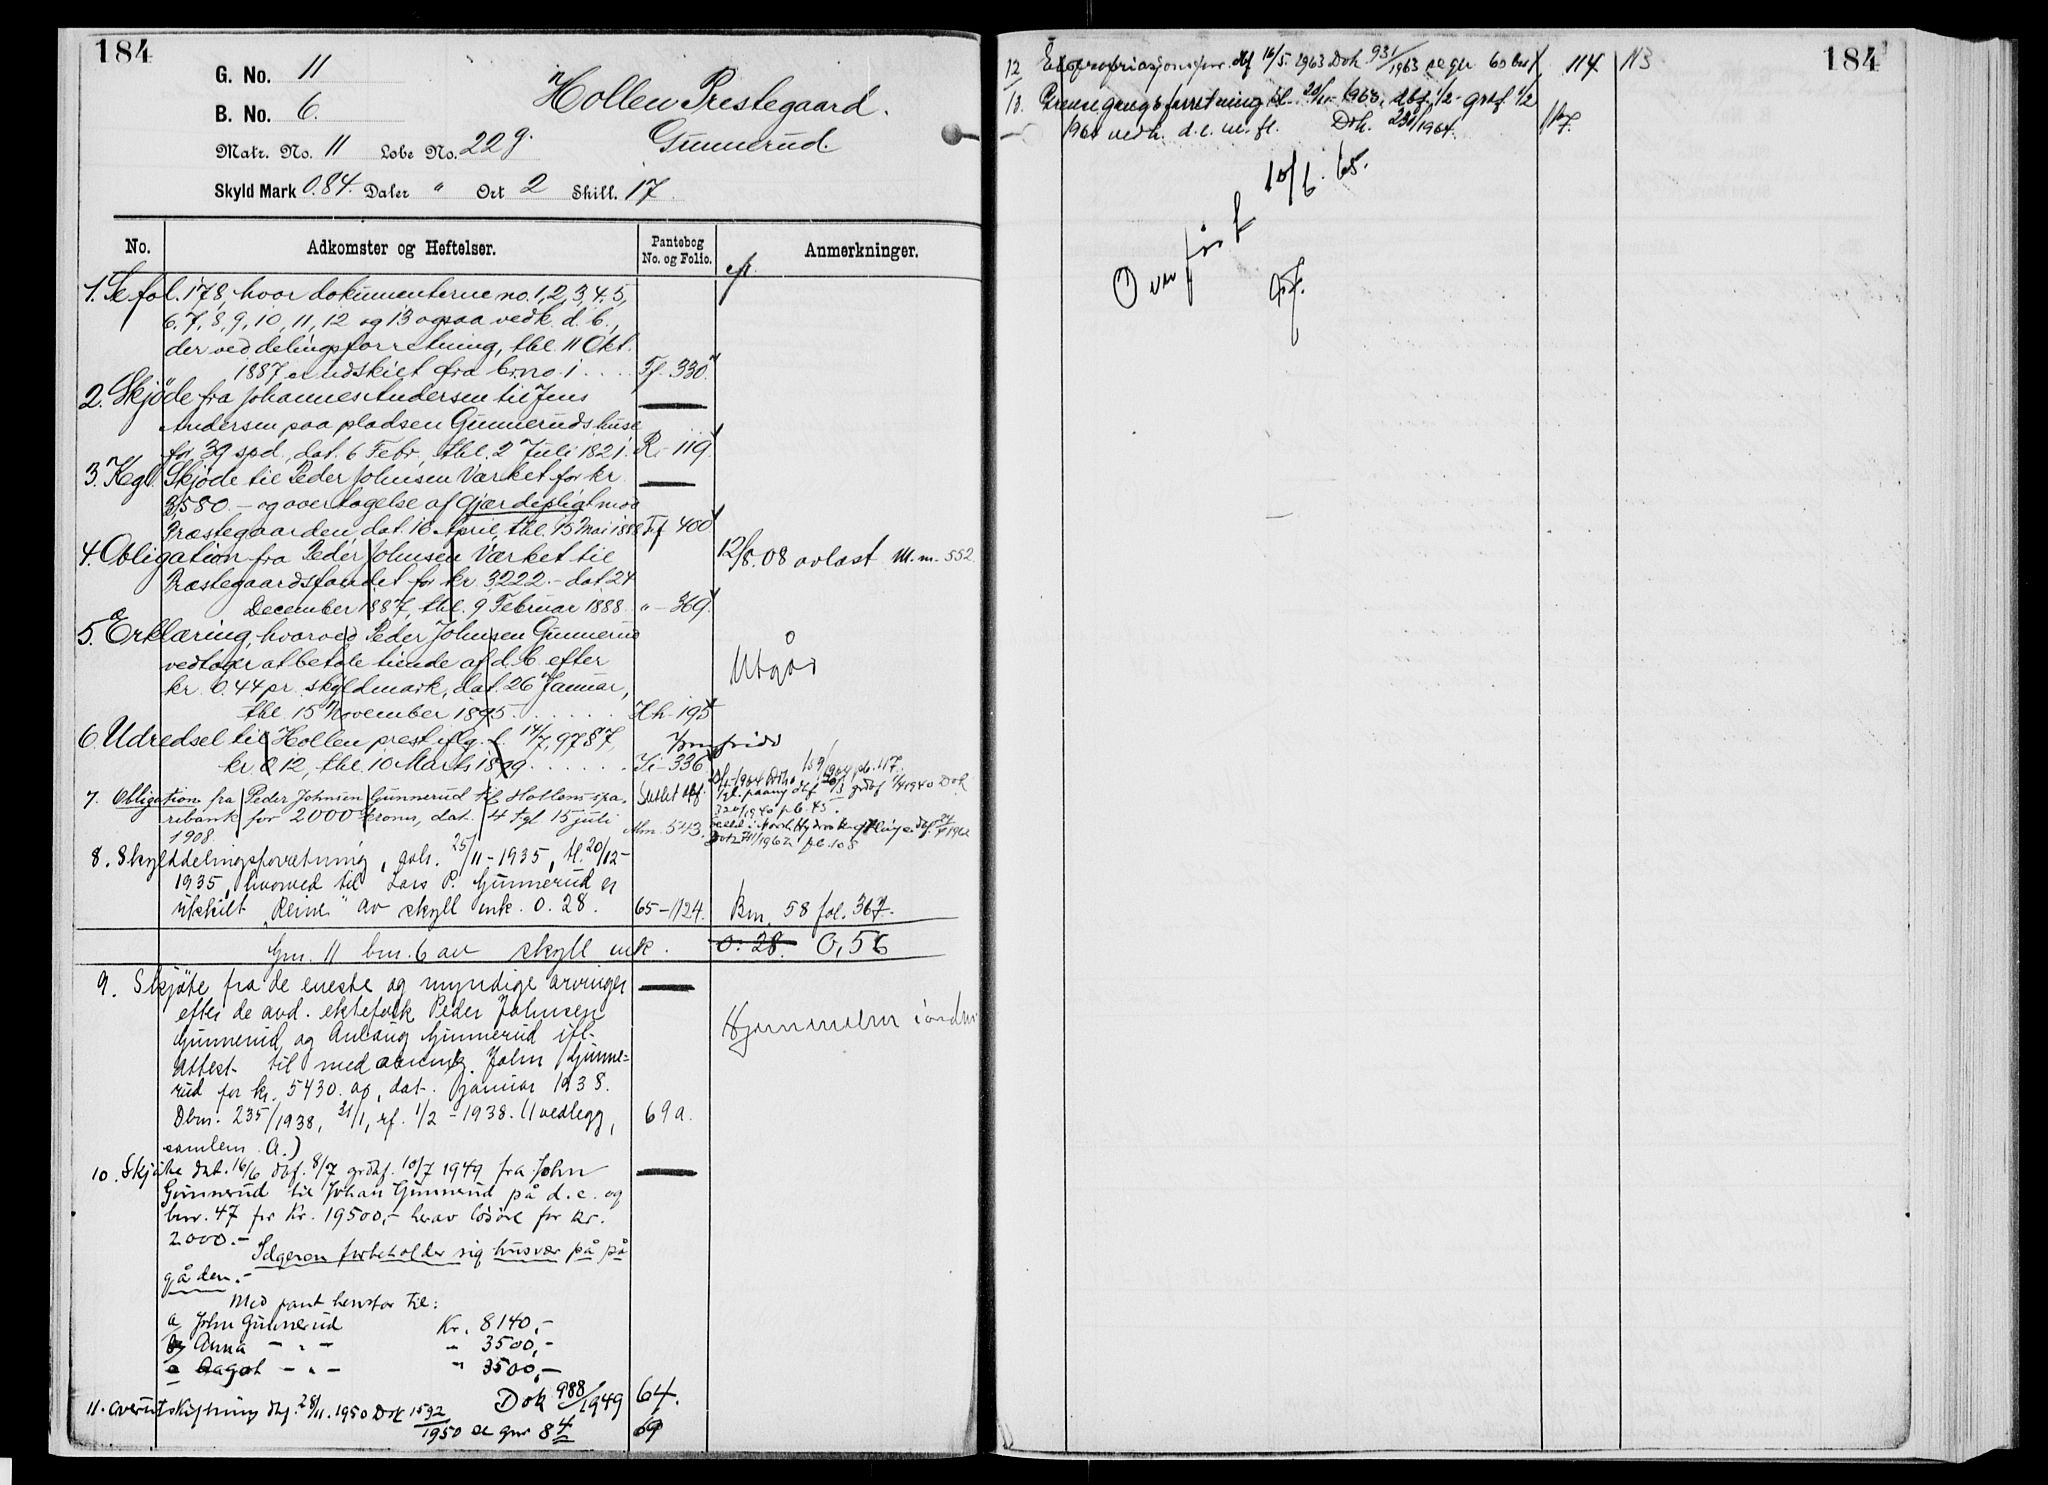 184
G. No. 11
B. No. 6.
Hollen Prestegaard.
Gunnerud.
Matr. No. 11 Løbe No. 22 g.
Skyld Mark 0.84. Daler " Ort 2 Skill. 17
No. Adkomster og Heftelser. Pantebog No. og Folio. Anmerkninger.
1. Se fol. 178, hvor dokumenterne no. 1, 2, 3, 4, 5,
6, 7, 8, 9, 10, 11, 12 og 13 ogsaa vedk. d. b.,
der ved delingsforretning, thl. 11 Okt.
1887 er udskilt fra br.no. 1 . . . . Ff. 330.
2. Skjöde fra Johannes Andersen til Jens
Andersen paa pladsen Gunnerudshuse
for 39 spd., dat. 6 Febr., thl. 2 Juli 1821. R - 119
3. Kgl. Skjøde til Peder Johnsen Værket for kr.
3,580. - og overtagelse af gjærdepligt mod
Præstegaarden, dat. 16 April, thl. 15 Mai 1888 Ff. 400
4. Obligation fra Peder Johnsen Værket til
Præstegaardsfondet for kr. 3222. - dat. 24
December 1887, thl. 9 Februar 1888. " - 369
12/8. 08 avlæst M.m. 552.
5. Erklæring, hvorved Peder Johnsen Gunnerud
vedtager at betale tiende af d. b. efter
kr. 0.44 pr. skyldmark, dat. 26 Januar,
thl. 15 November 1895. . . . . . Hh - 195
Utgår
6. Udredsel til Hollen prest iflg. L. 14/7, 97 § 7,
kr. 0.12, thl. 10 Marts 1899. . . . . . . Ii - 336
7. Obligation fra Peder Johnsen Gunnerud til Hollens spa-
rebank for 2000 kroner, dat. 4 tgl 15 juli
1908. Slettet
Mm. 543.
8. Skylddelingsforretning, avh. 25/11 - 1935, tl. 20/12 -
1935, hvorved til Lars P. Gunnerud er
utskilt "Reine" av skyll mk. 0.28. 65 - 1124. Bm. 58 fol. 367.
Gm. 11 bm. 6 av skyll mk. 0.28. 0,56
9. Skjøte fra de eneste og myndige arvinger
efter de avd. ektefolk Peder Johnsen
Gunnerud og Anlaug Gunnerud ifl.
attest til medarving John Gunne-
rud for kr. 5430. og, dat. januar 1938.
Dbm. 235/1938, 31/1, rf. 1/2 - 1938. (1 vedlegg,
samlem. A.) 69a.
Hjemmelen i orden
10. Skjøte dat. 16/6 dbf. 8/7 grdbf. 10/7 1949 fra John
Gunnerud til Johan Gunnerud på d. e. og
bnr. 47 for Kr. 19500,- herav løsøre for kr.
2000.-
Selgeren forbeholder sig husvær på på
gården.-
Med pant henstår til:
a John Gunnerud Kr. 8140,-
b Anna - " - " 3500,-
c Aagot - " - " 3500,-
Dok 988/1949 64.
11. overutskiftning dbf. 28/11. 1950 Dok 1592/1950 se gnr 8 4 69
184
12 Ekspropriasjonsforr. dbf 16/5 1963 Dok 931/1963 se gnr 60 bnr 1, 114 113
13. Grensegangsforretning 20/11 - 1963, dbf. 1/2 - grbf 1/2
1964 vedk. d. e. m. fl. Dok. 231/1964. 117.
Overført 10/6. 65.